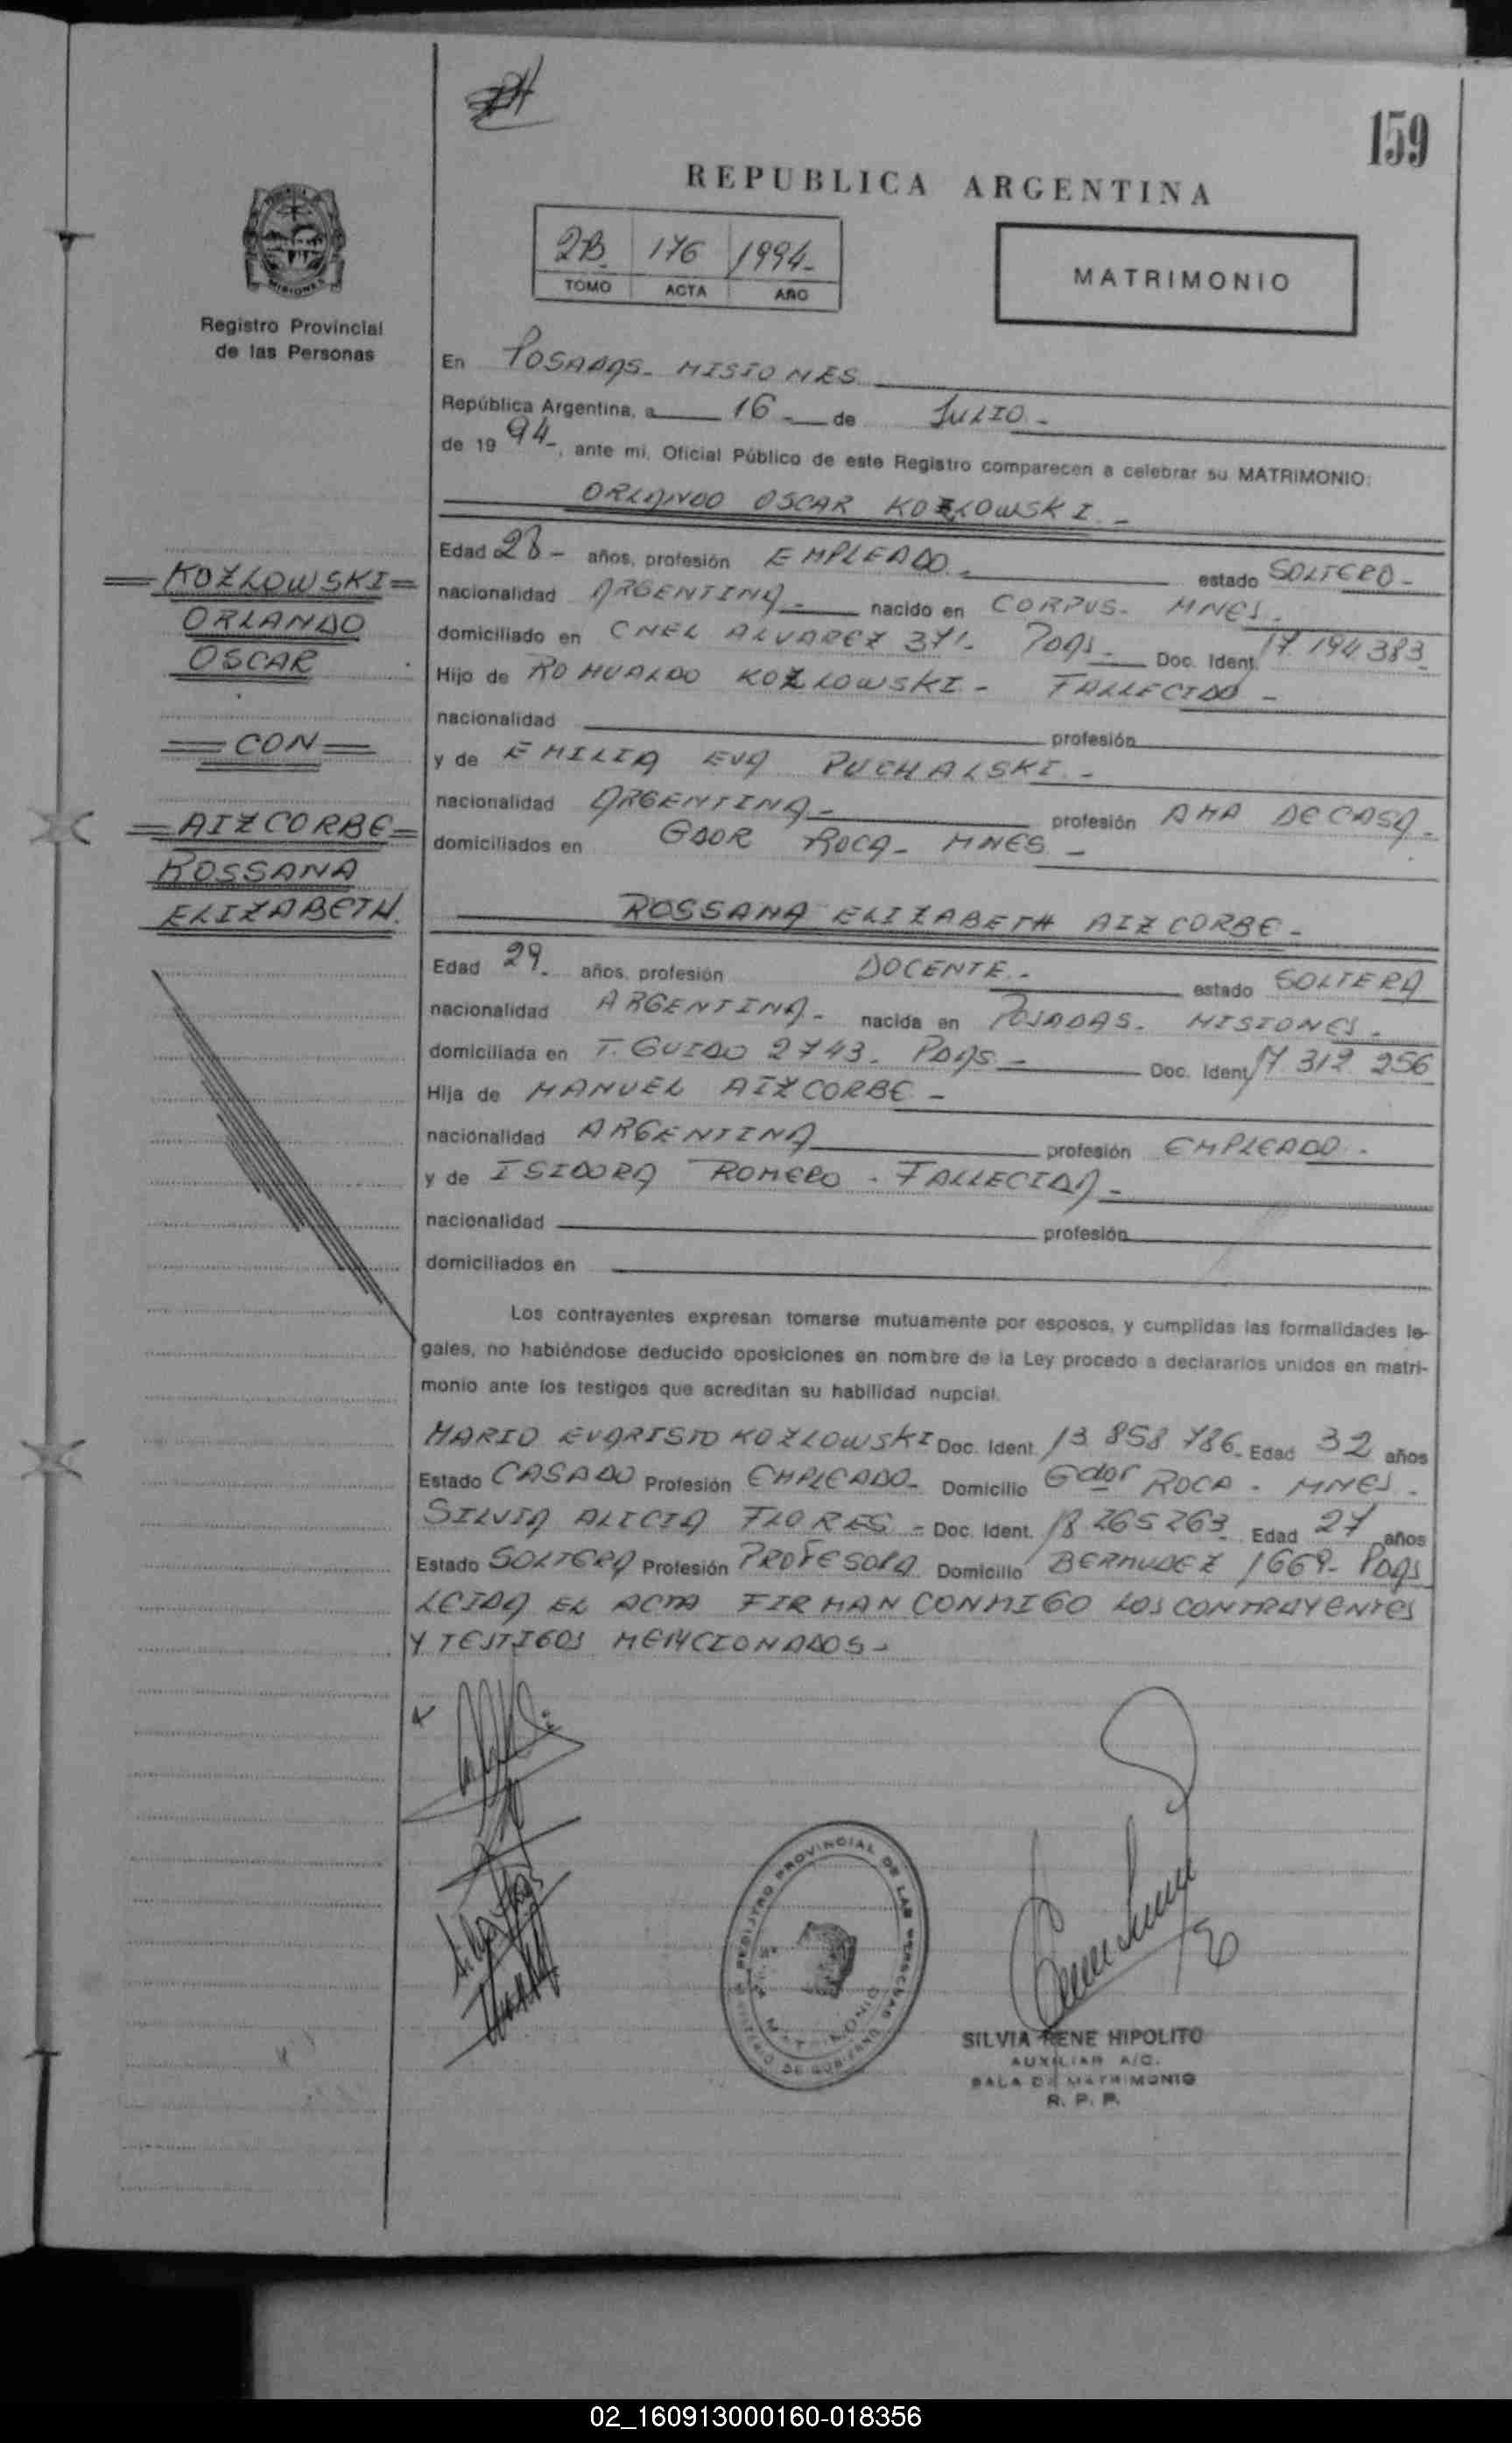 159
REPUBLICA ARGENTINA
2B 176 1994-
TOMO ACTA AÑO
MATRIMONIO
MISIONES
Registro Provincial
de las Personas
En POSADAS- MISIONES
República Argentina, a 16- de JULIO-
de 19 94-, ante mi, Oficial Público de este Registro comparecen a celebrar su MATRIMONIO:
ORLANDO OSCAR KOZLOWSKI-
Edad 28- años, profesión EMPLEADO- estado SOLTERO-
nacionalidad ARGENTINA- nacido en CORPUS- MNES.
domiciliado en CNEL ALVAREZ 371- PDAS- Doc. Ident. 17 194 383
Hijo de ROMUALDO KOZLOWSKI- FALLECIDO-
nacionalidad profesión
y de EMILIA EVA PUCHALSKI-
nacionalidad ARGENTINA- profesión AMA DE CASA-
domiciliados en GDOR ROCA- MNES-
KOZLOWSKI
ORLANDO
OSCAR
CON
AIZCORBE
ROSSANA
ELIZABETH.
ROSSANA ELIZABETH AIZCORBE-
Edad 29- años, profesión DOCENTE- estado SOLTERA
nacionalidad ARGENTINA- nacida en POSADAS- MISIONES-
domiciliada en T. GUIDO 2743- PDAS- Doc. Ident. 17 312 256
Hija de MANUEL AIZCORBE-
nacionalidad ARGENTINA profesión EMPLEADO-
y de ISIDORA ROMERO- FALLECIDA-
nacionalidad profesión
domiciliados en
Los contrayentes expresan tomarse mutuamente por esposos, y cumplidas las formalidades le-
gales, no habiéndose deducido oposiciones en nombre de la Ley procedo a declararlos unidos en matri-
monio ante los testigos que acreditan su habilidad nupcial.
MARIO EVARISTO KOZLOWSKI Doc. Ident. 13 858 786- Edad 32 años
Estado CASADO Profesión EMPLEADO- Domicilio Gdor ROCA- MNES-
SILVIA ALICIA FLORES- Doc. Ident. 18 265 263 Edad 27 años
Estado SOLTERA Profesión PROFESORA Domicilio BERMUDEZ 1669- PDAS
LEIDA EL ACTA FIRMAN CONMIGO LOS CONTRAYENTES
Y TESTIGOS MENCIONADOS-
REGISTRO PROVINCIAL DE LAS PERSONAS
MATRIMONIO
SILVIA RENE HIPOLITO
AUXILIAR A/C.
SALA DE MATRIMONIO
R. P. P.
02_160913000160-018356